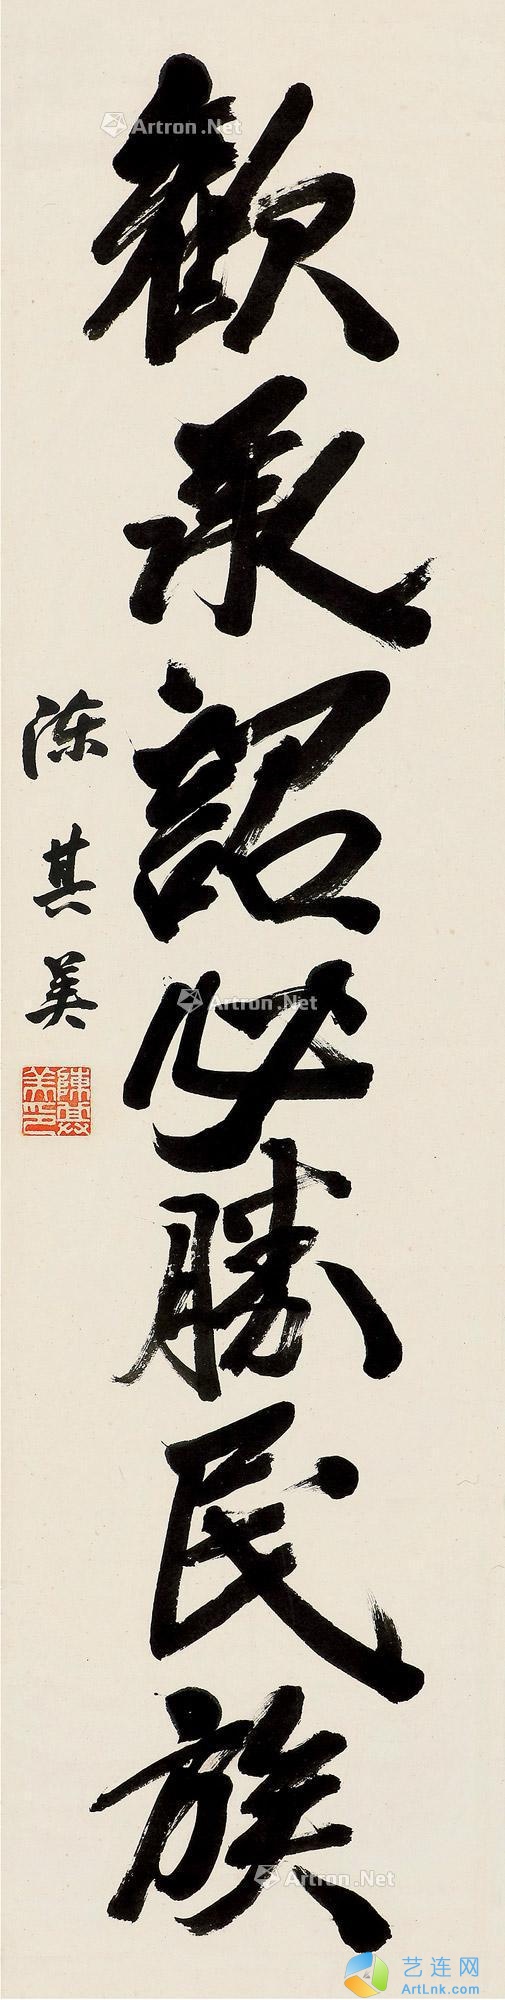 歡承詔必勝民族
陳其美
陳其美印
Artron.Net
Artron.Net
Artron.Net
艺连网
ArtLnk.com